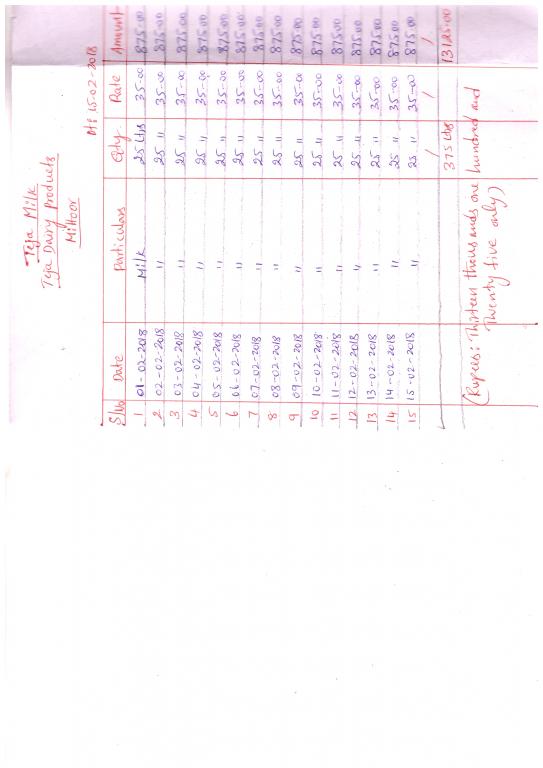 Teja Milk
Teja Dairy Products
Mittoor
Dt: 15-02-2018
S/No Date Particulars Qty Rate Amount
1 01-02-2018 Milk 25 Lts 35-00 875.00
2 02-02-2018 " 25 " 35-00 875.00
3 03-02-2018 " 25 " 35-00 875.00
4 04-02-2018 " 25 " 35-00 875.00
5 05-02-2018 " 25 " 35-00 875.00
6 06-02-2018 " 25 " 35-00 875.00
7 07-02-2018 " 25 " 35-00 875.00
8 08-02-2018 " 25 " 35-00 875.00
9 09-02-2018 " 25 " 35-00 875.00
10 10-02-2018 " 25 " 35-00 875.00
11 11-02-2018 " 25 " 35-00 875.00
12 12-02-2018 " 25 " 35-00 875.00
13 13-02-2018 " 25 " 35-00 875.00
14 14-02-2018 " 25 " 35-00 875.00
15 15-02-2018 " 25 " 35-00 875.00
375 Lts / 13125.00
(Rupees: Thirteen thousands one hundred and
Twenty five only)